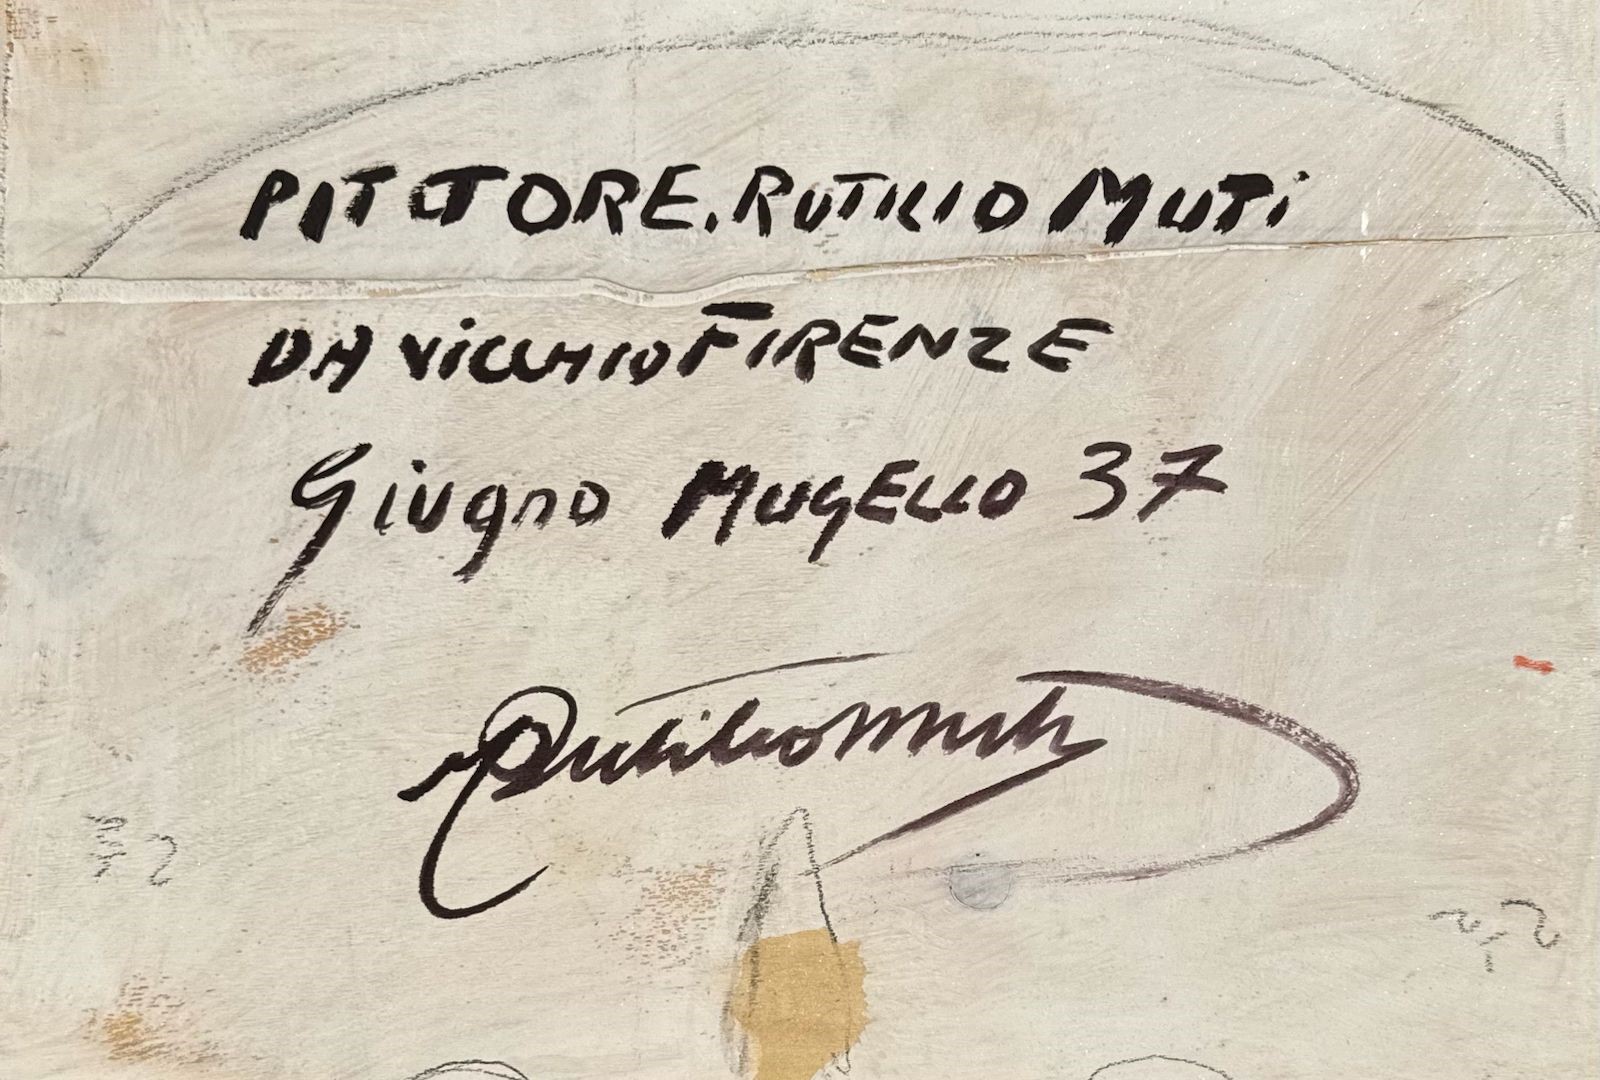 PITTORE. RUTILIO MUTI
DA VICCHIO FIRENZE
Giugno MUGELLO 37
Rutilio Muti